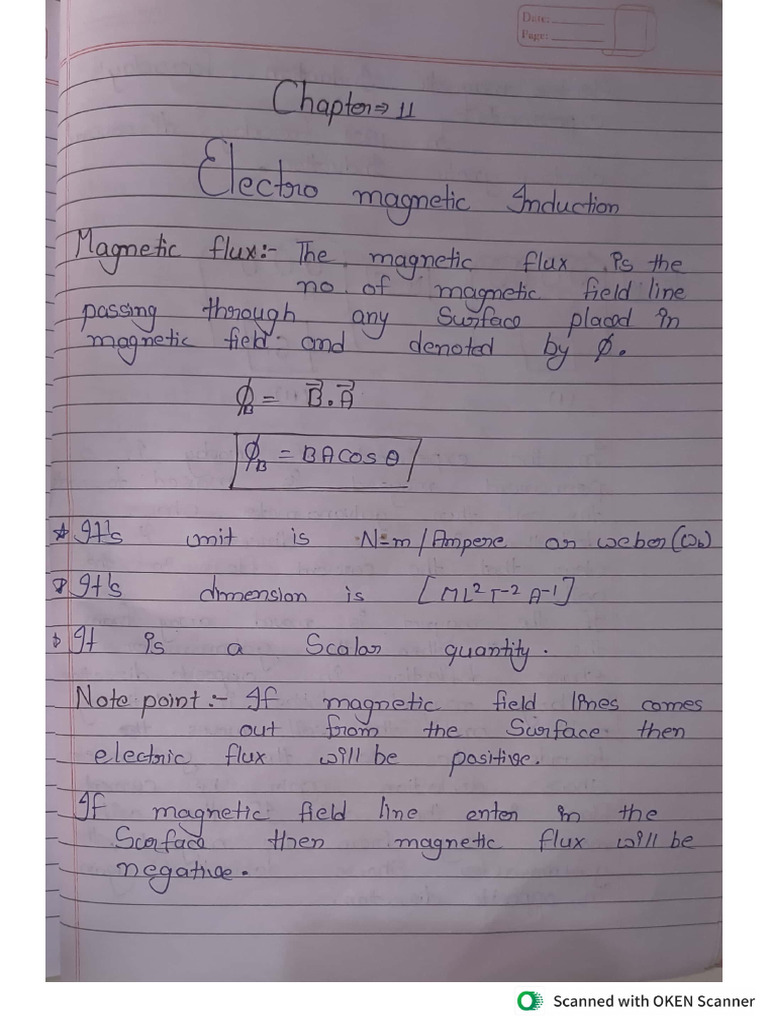 Date:
Page:
Chapter⇒ 11
Electro magnetic Induction
Magnetic flux:- The magnetic flux is the
no. of magnetic field line
passing through any surface placed in
magnetic field and denoted by ϕ.
ϕB = B⃗.A⃗
ϕB = BA cos θ
It's unit is N-m/Ampere or weber (wb)
It's dimension is [ML²T⁻²A⁻¹]
It is a Scalar quantity.
Note point:- If magnetic field lines comes
out from the Surface then
electric flux will be positive.
If magnetic field line enter in the
Surface then magnetic flux will be
negative.
Scanned with OKEN Scanner